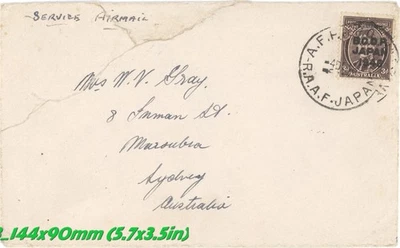 SERVICE AIRMAIL
B.C.O.F.
JAPAN
1946
AUSTRALIA
R.A.A.F. JAPAN
Mrs W. V. Gray.
8 Inman St.
Maroubra
Sydney
Australia
144x90mm (5.7x3.5in)